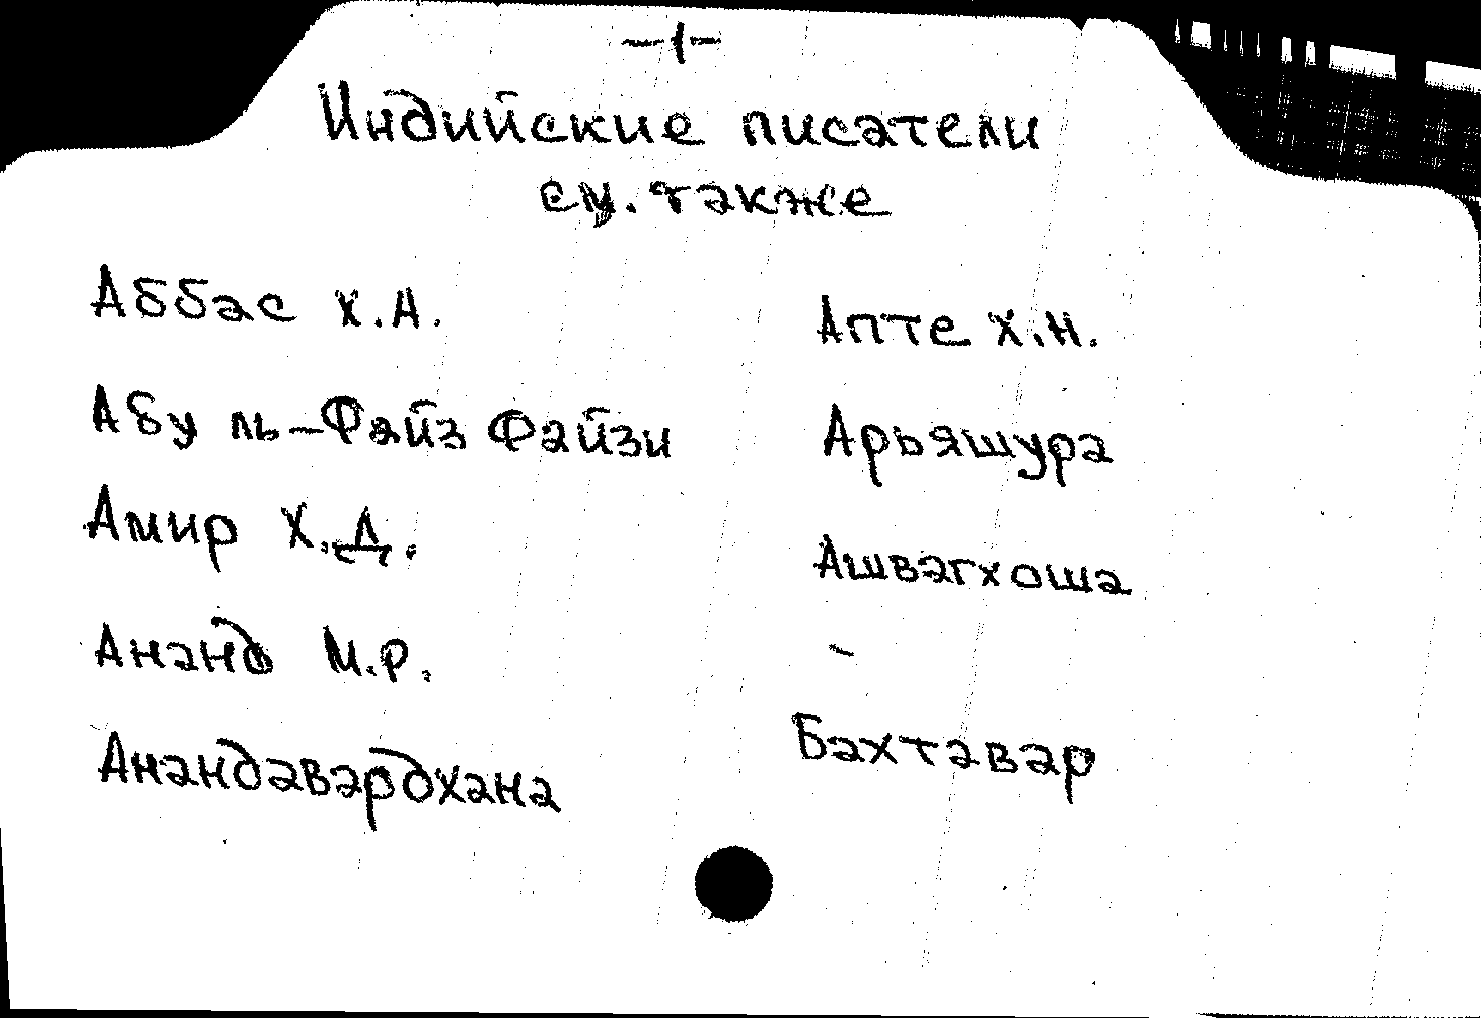 -1-
Индийские писатели
см. также
Аббас Х.А.
Абу ль-Файз Файзи
Амир Х.Д.
Ананд М.Р.
Анандавардхана
Апте Х.Н.
Арьяшура
Ашвагхоша
Бахтавар